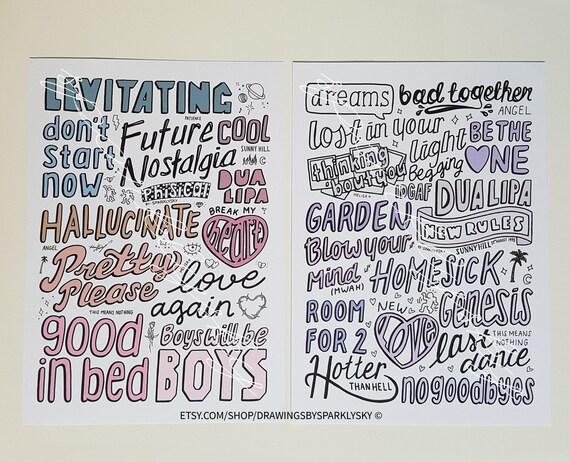 LEVITATING
don't start now
PATIENCE
Future Nostalgia
COOL
SUNNY HILL
PHYSICAL
SPARKLYSKY
DUA LIPA
HALLUCINATE
BREAK MY heart
ANGEL
Pretty Please
THIS MEANS NOTHING
love again
good in bed
Boys will be BOYS
dreams
bad together
ANGEL
lost in your light
BE THE ONE
thinking 'bout you
Begging
IDGAF
DUA LIPA
GARDEN
NEW RULES
SUNNY HILL
Blow your Mind (MWAH)
HOMESICK
ROOM FOR 2
NEW LOVE
genesis
last dance
THIS MEANS NOTHING
Hotter THAN HELL
no goodbyes
ETSY.COM/SHOP/DRAWINGSBYSPARKLYSKY ©